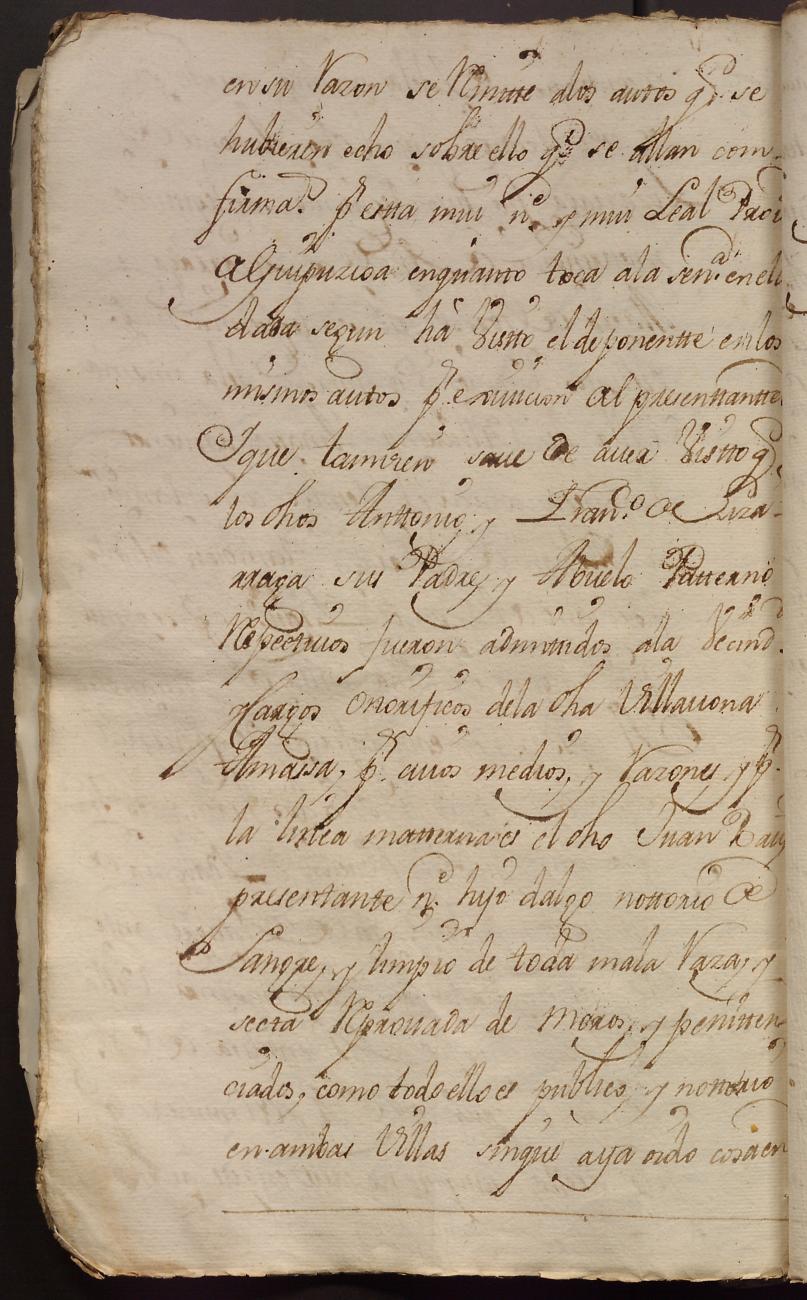 en su Razon se Remite a los autos q.e se
hubieren echo sobre ello q.e se allan con-
firma.s p.r esta mui n.e y mui Leal Prov
de Guipuzcoa en quanto toca a la sen.a en ell
dada segun ha Vistto el deponentte en los
mismos autos p.r exivicion del presenttantte
Y que tamvien save de aver Vistto q.e
los dhos Anttonio, y Fran.co de Liza-
rraga sus Padre, y Abuelo Patterno
Respectivos fueron admitidos a la Vecind.d
y Cargos onorificos de la dha Villa
Amassa, p.r cuios medios, y Razones, y p.r
la linea matterna es el dho Juan Bau
presentante n.e hijo dalgo nottorio de
Sangre, y limpio de toda mala Raza, y
secta Reprovada de Moros, y penitten
ciados, como todo ello es publico, y nottorio
en ambas Villas sin que aya oido cosa en